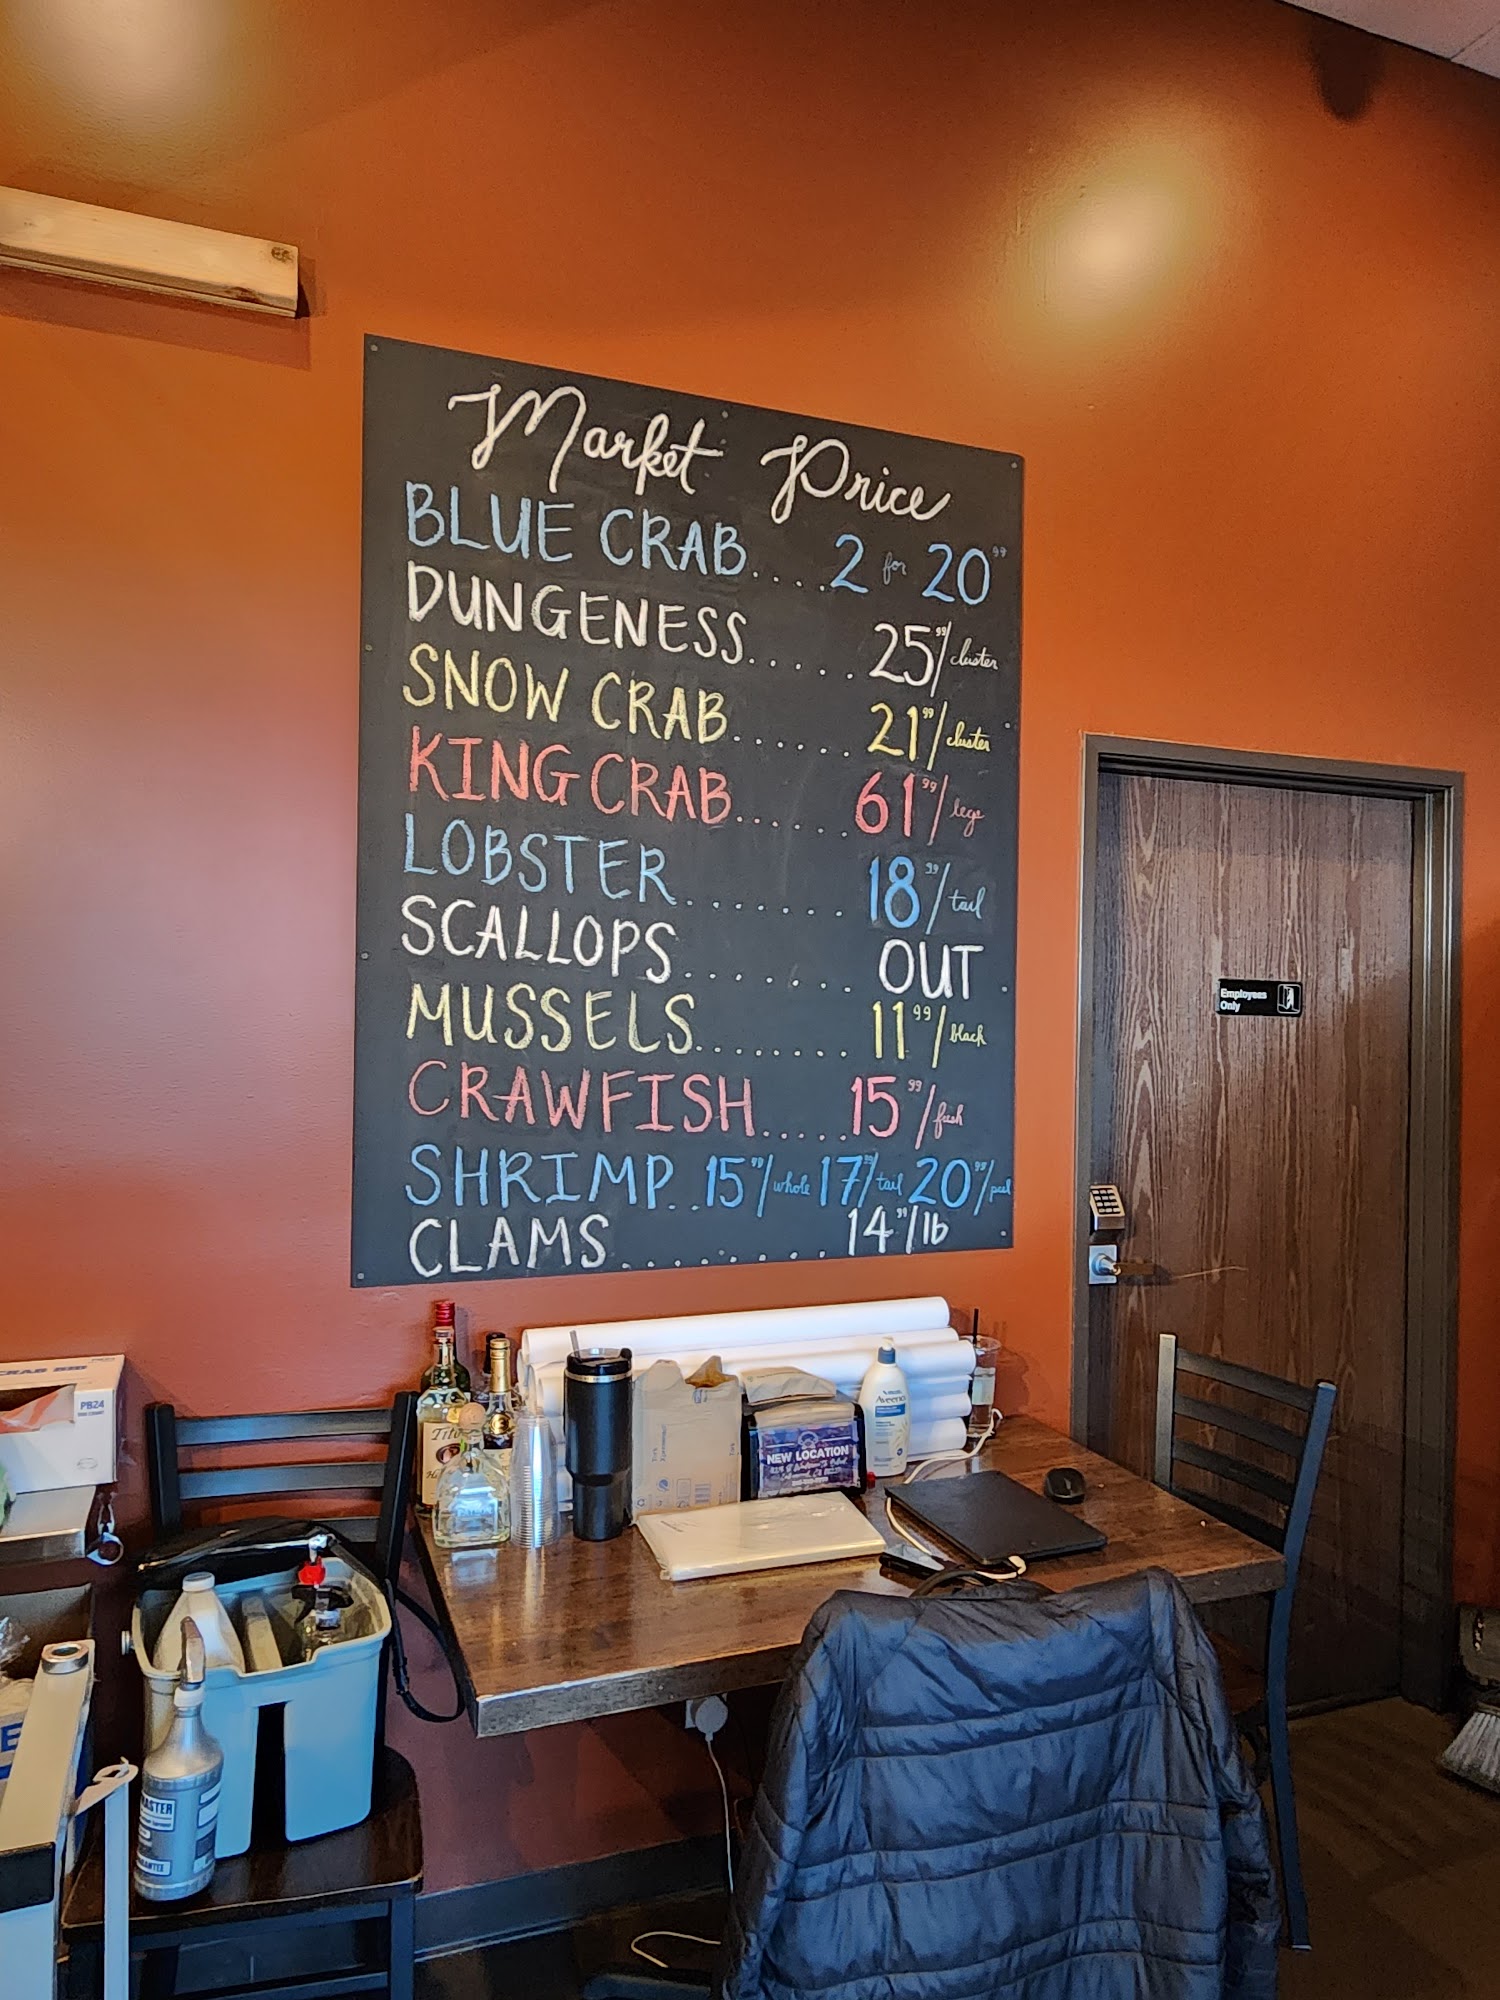 Market Price
BLUE CRAB....2 for 20⁹⁹
DUNGENESS.....25⁹⁹/cluster
SNOW CRAB......21⁹⁹/cluster
KING CRAB......61⁹⁹/legs
LOBSTER.......18⁹⁹/tail
SCALLOPS.......OUT
MUSSELS........11⁹⁹/black
CRAWFISH.....15⁹⁹/fresh
SHRIMP..15⁹⁹/whole 17⁹⁹/tail 20⁹⁹/peel
CLAMS........14⁹⁹/lb
Employees
Only
CRAB BIB
PB24
Tito's
Aveeno
NEW LOCATION